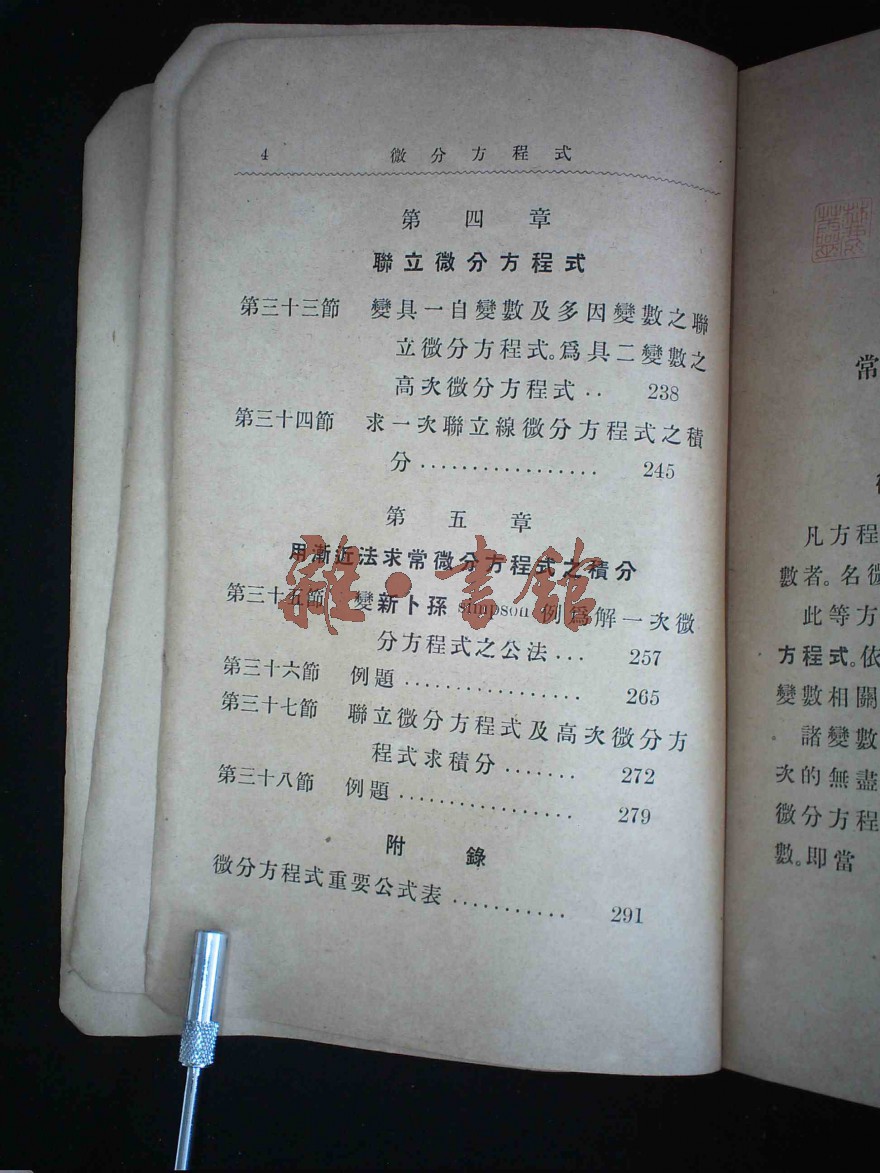 4 微分方程式
第四章
聯立微分方程式
第三十三節 變具一自變數及多因變數之聯
立微分方程式。爲具二變數之
高次微分方程式‥ 238
第三十四節 求一次聯立線微分方程式之積
分‥‥‥‥‥‥‥‥‥ 245
第五章
用漸近法求常微分方程式之積分
第三十五節 變新卜孫 simpson 例爲解一次微
分方程式之公法... 257
第三十六節 例題.................. 265
第三十七節 聯立微分方程式及高次微分方
程式求積分....... 272
第三十八節 例題.................. 279
附錄
微分方程式重要公式表........... 291
雜·書館
常
凡方程
數者。名微
此等方
方程式。依
變數相關
諸變數
次的無盡
微分方程
數。即當